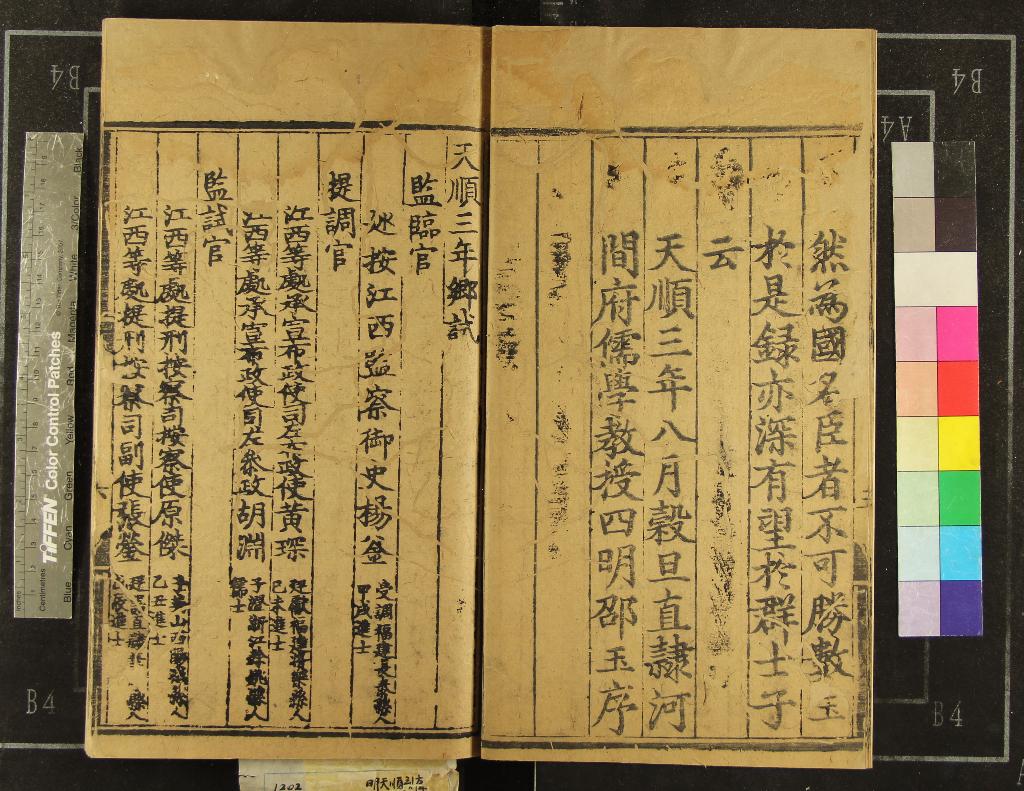 然為國名臣者不可勝數玉
於是録亦深有望於群士子
云
天順三年八月穀旦直隷河
間府儒學教授四明邵玉序
天順三年鄉試
監臨官
巡按江西監察御史楊 受調福建長 縣人 甲戌進士
提調官
江西等處承宣布政使司左布政使黃琛 廷獻福建將樂縣人 己未進士
江西等處承宣布政使司左叅政胡淵 子澄浙江餘姚縣人 儒士
監試官
江西等處提刑按察司按察使原傑 子英山西陽城縣人 乙丑進士
江西等處提刑按察司副使張鎣 縣人 戊辰進士
TIFFEN Color Control Patches
Inches
Centimetres
Blue
Cyan
Green
Yellow
Red
Magenta
White
3/Color
Black
B4
B4
A4
B4
B4
1202
明天順